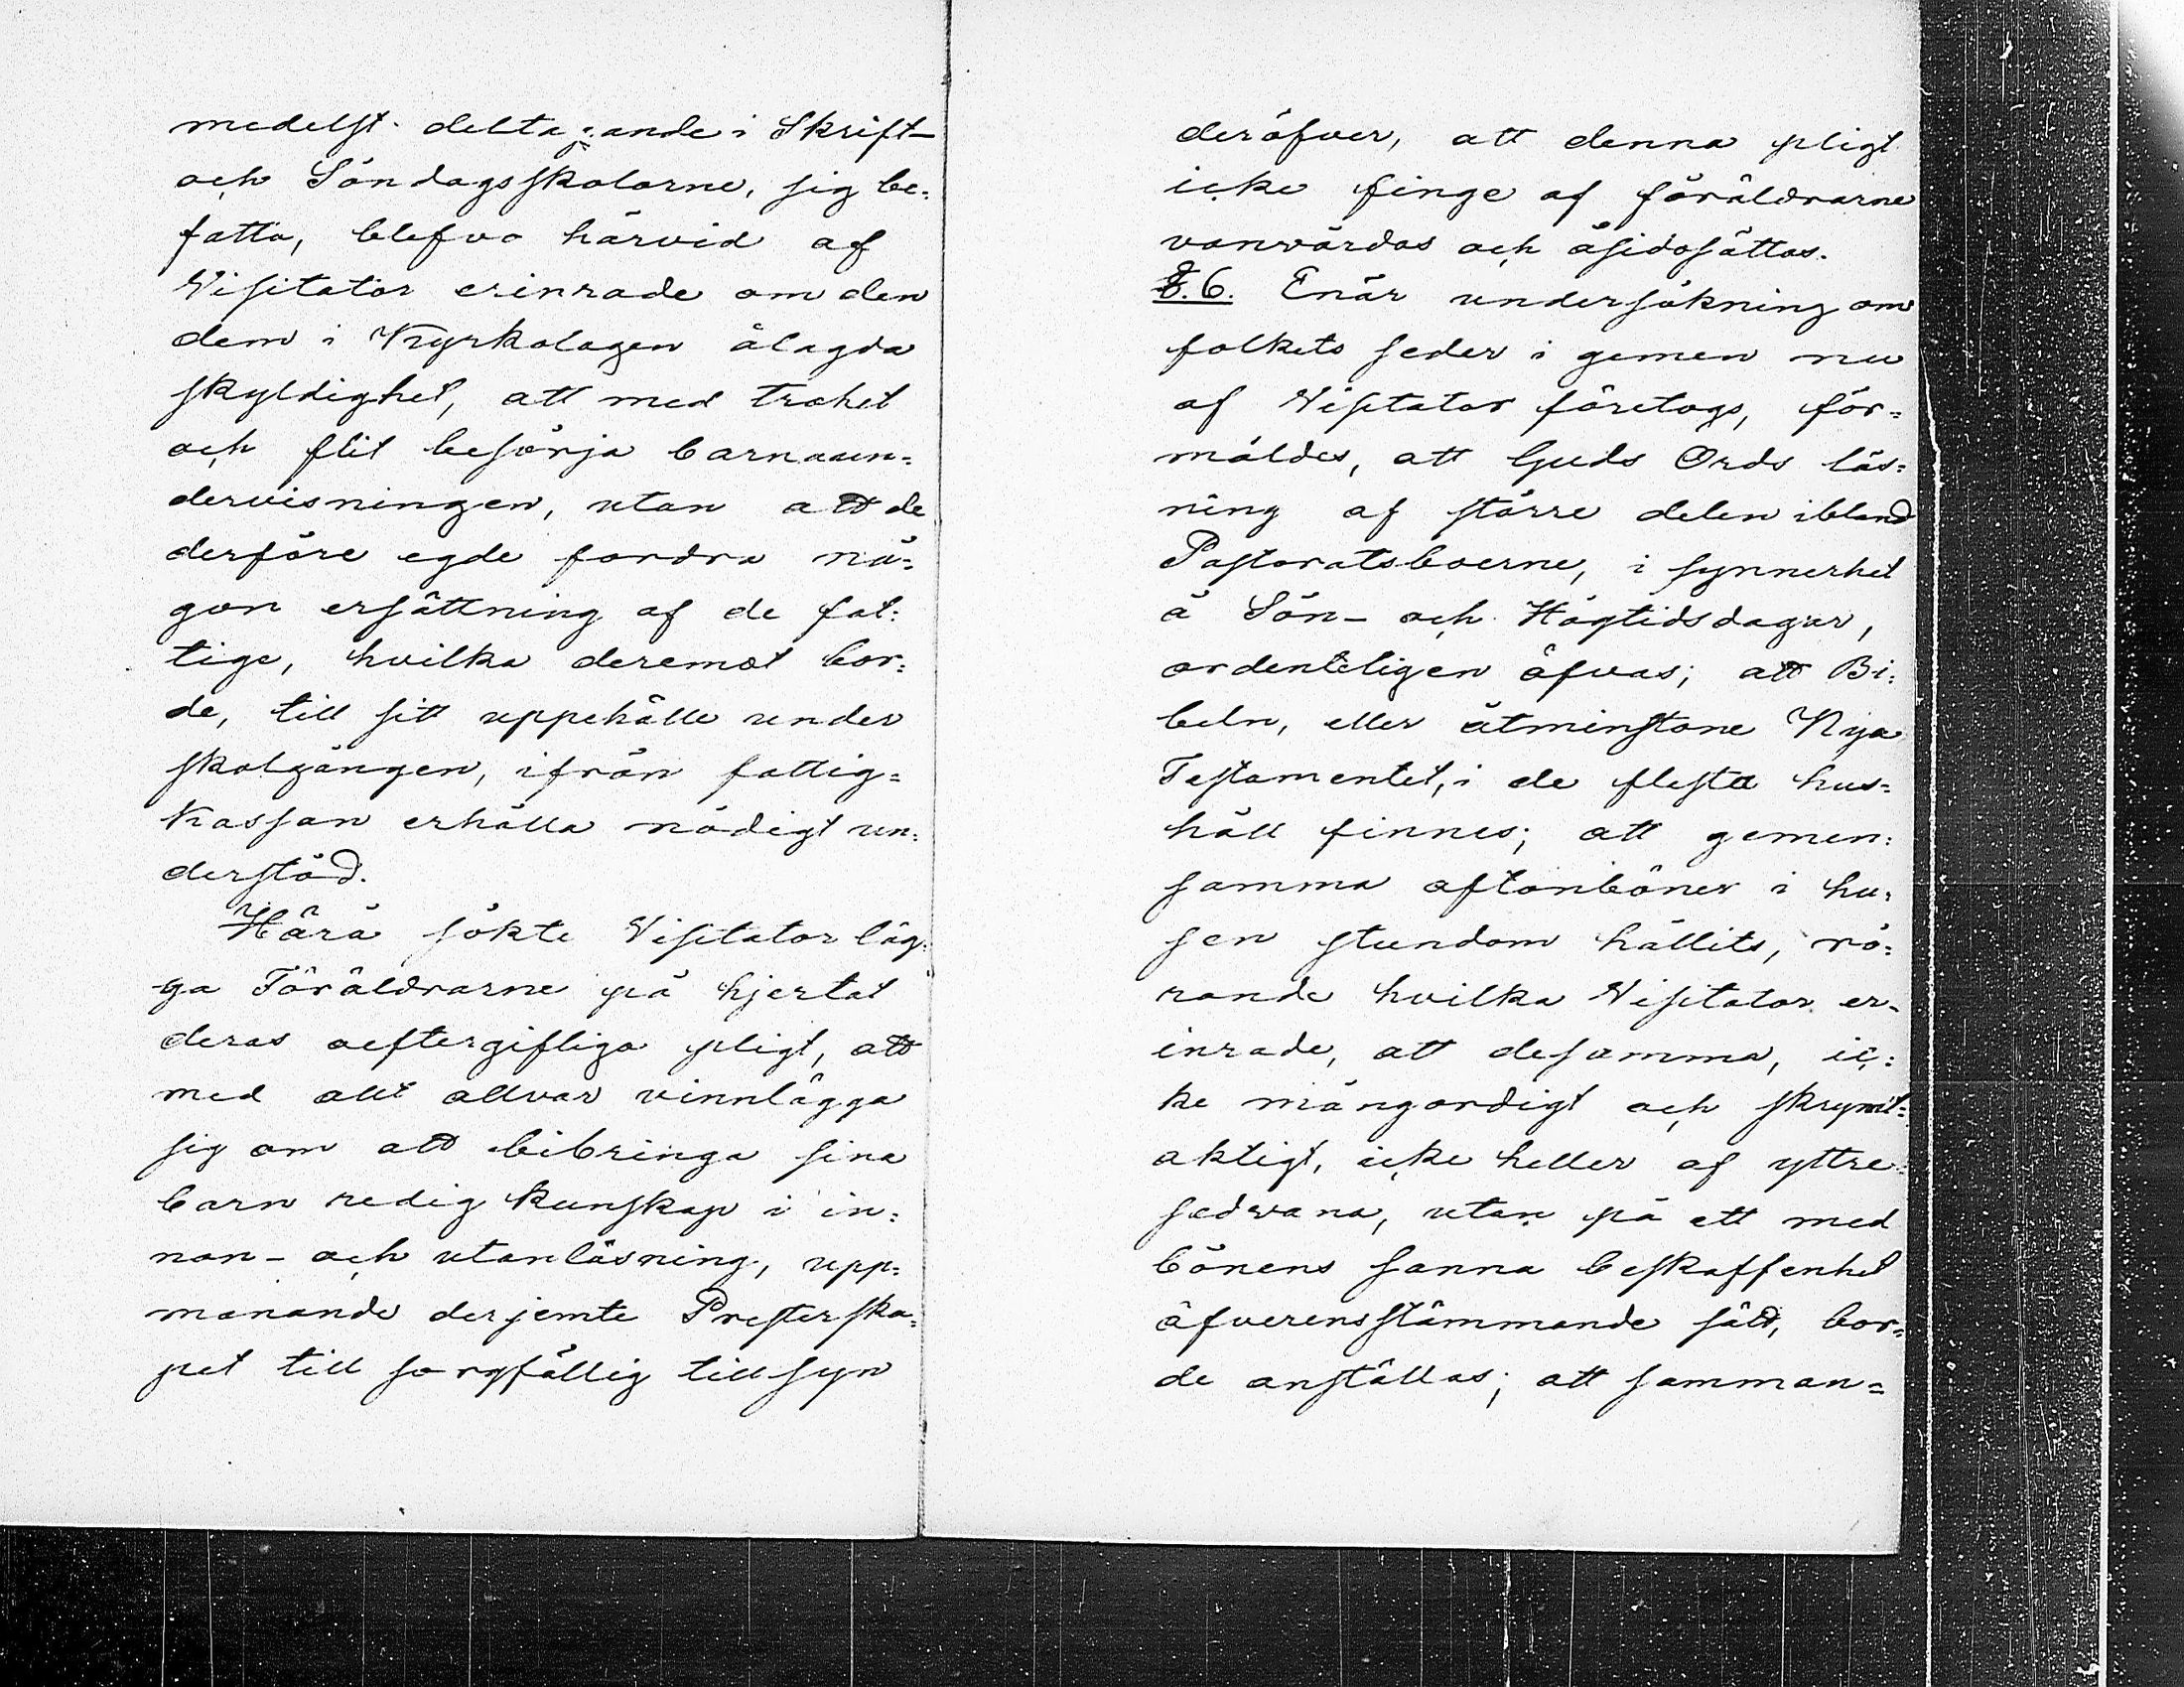 medelst deltagande i Skrift-
och Söndagsskolorne, sig be=
fatta, blefvo härvid af
Visitator erinrade om den
dem i Kyrkolagen ålagda
skyldighet, att med trohet
och flit besörja barnaun=
dervisningen, utan att de
derföre egde fordra nå=
gon ersättning af de fat=
tige, hvilka deremot bor=
de, till sitt uppehälle under
skolgången, ifrån fattig=
kassan erhålla nödigt un=
derstöd.
Härå sökte Visitator läg=
ga Föräldrarne på hjertat
deras oeftergifliga pligt, att
med allt allvar vinnlägga
sig om att bibringa sina
barn redig kunskap i in=
nan- och utanläsning, upp=
manande derjemte Presterska=
pet till sorgfällig tillsyn
deröfver, att denna pligt
icke finge af föräldrarne
vanvårdas och åsidosättas.
§. 6. Enär undersökning om
folkets seder i gemen nu
af Visitator företogs, för=
mäldes, att Guds Ords läs=
ning af större delen ibland
Pastoratsboerne, i synnerhet
å Sön- och Högtidsdagar,
ordenteligen öfvas; att Bi=
beln, eller åtminstone Nya
Testamentet, i de flesta hus=
håll finnes; att gemen=
samma aftonböner i hu=
sen stundom hållits, rö=
rande hvilka Visitator er=
inrade, att desamma, ic=
ke mångordigt och skrymt=
aktigt, icke heller af yttre
sedvana, utan på ett med
bönens sanna beskaffenhet
öfverensstämmande sätt, bor=
de anställas; att samman=